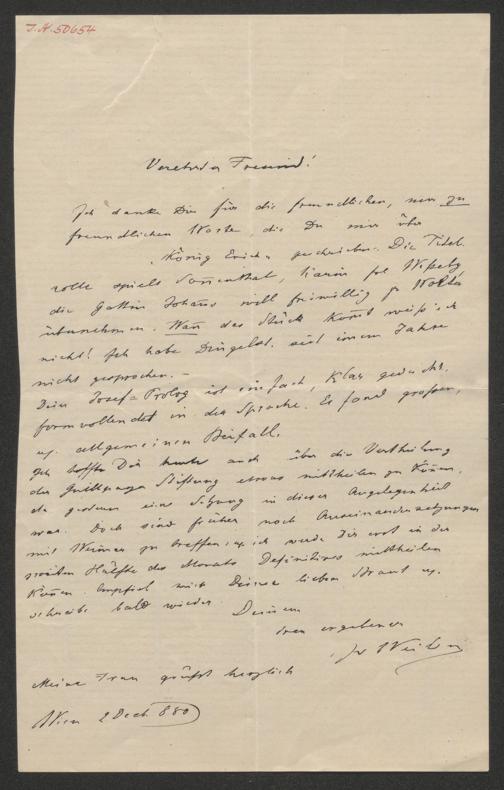 J.N. 50654
Verehrter Freund!
Ich danke Dir für die freundlichen, nur zu
freundlichen Worte, die Du mir über
„König Erich“ geschrieben. Die Titel-
rolle spielt Sonnenthal, Karin Frl Weßely
die Gattin Johans will freiwillig Fr Wolter
übernehmen. Wan das Stück kommt weiß ich
nicht! Ich habe Dingelst. seit einem Jahre
nicht gesprochen. –
Dein Josefs Prolog ist einfach, klar gedacht,
formvollendet in der Sprache. Es fand großen,
u. allgemeinen Beifall.
Ich hoffte Dir heute auch über die Vertheilung
der Grillparzer Stiftung etwas mittheilen zu können,
da gestern eine Sitzung in dieser Angelegenheit
war. Doch sind früher noch Auseinandersetzungen
mit Weimar zu treffen, u. ich werde Dir erst in der
zweiten Hälfte des Monats Definitives mittheilen
können. Empfiel mich Deiner lieben Braut u.
schreibe bald wieder
Deinem
treu ergebenen
Jos Weilen
Meine Frau grüßt herzlich
Wien 2 Dect. 880